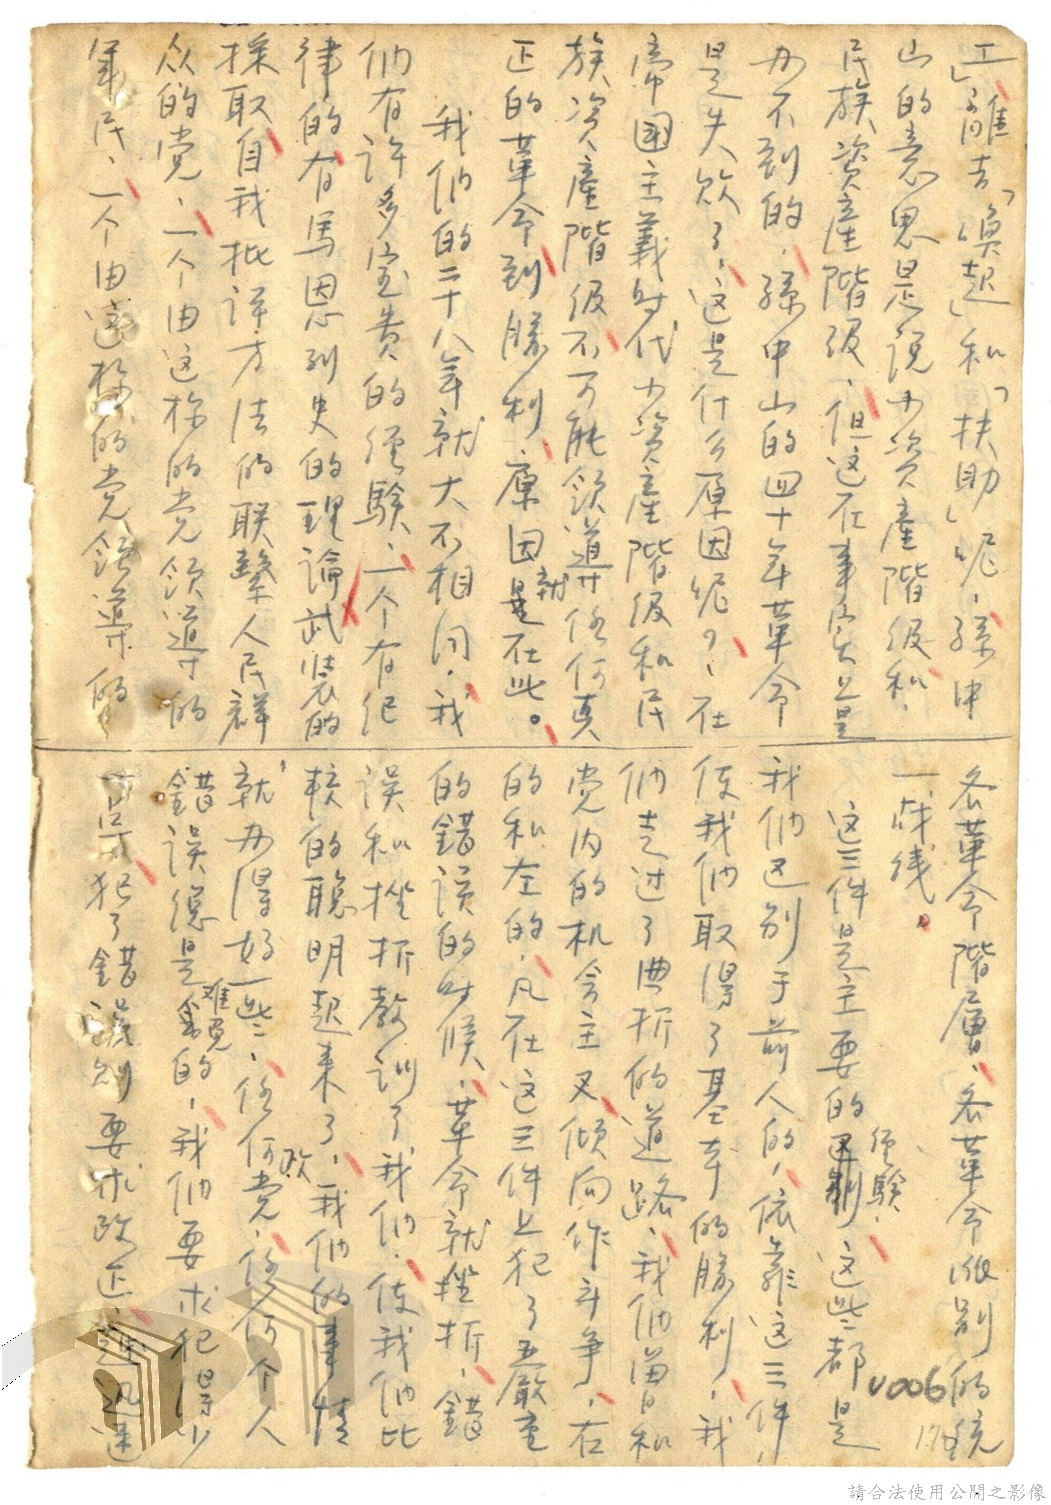 工」誰去「喚起」和「扶助」呢，孫中
山的意思是說小資產階級和
民族資產階級，但这在事实上是
办不到的，孫中山的四十年革命
是失敗了，这是什么原因呢？，在
帝國主義时代小資產階級和民
族資產階級不可能領導任何真
正的革命到勝利，原因就是在此。
我们的二十八年就大不相同，我
们有許多宝贵的经驗，一个有纪
律的有馬恩列史的理論武裝的
採取自我批評方法的联繫人民群
众的党，一个由这样的党领導的
軍民，一个由这样的党領導的
各革命階層，各革命派别的統
一战线。
这三件是主要的经験，这些都是
我们区别于前人的，依靠这三件，
使我们取得了基本的勝利，我
们走过了曲折的道路，我们曾和
党内的机会主义倾向作斗争，在
的和左的，凡在这三件上犯了严嚴重
的錯误的时候，革命就挫折，錯
误和挫折教训了我们，使我们比
較的聪明起来了，我们的事情
就办得好一些，任何政党，任何个人
錯误總是难免的，我们要求犯得少
一点，犯了錯誤则要求改正，越迅速
v006
請合法使用公開之影像